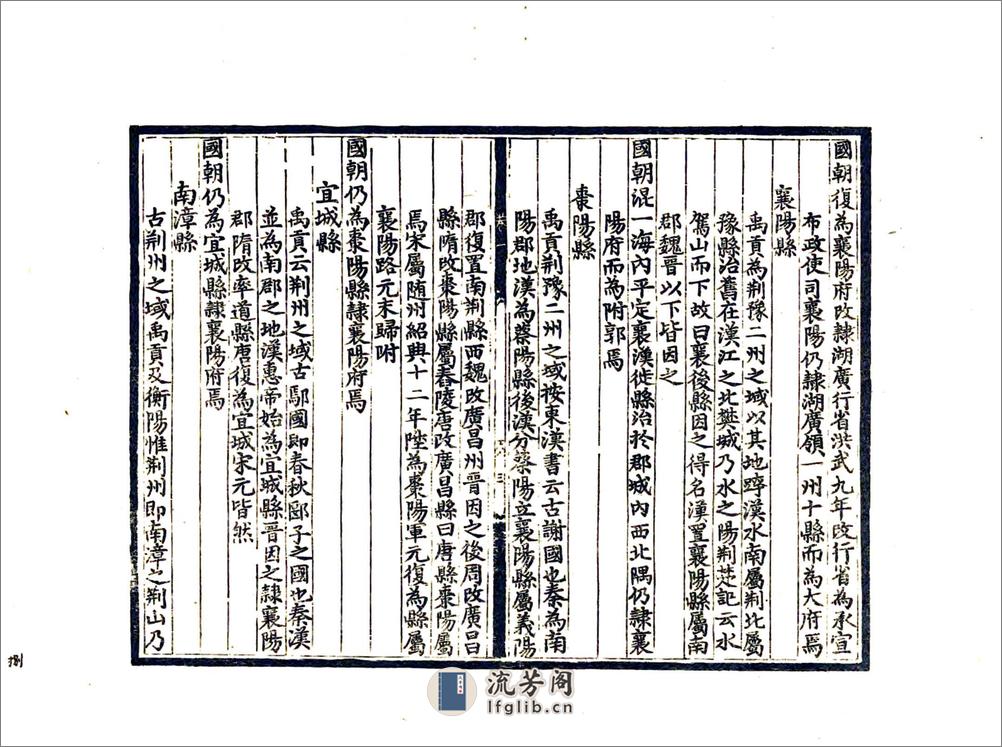 國朝復為襄陽府改隸湖廣行省洪武九年改行省為承宣
布政使司襄陽仍隸湖廣領一州十縣而為大府焉
襄陽縣
禹貢為荆豫二州之域以其地跨漢水南屬荆北屬
豫縣治舊在漢江之北樊城乃水之陽荆楚記云水
駕山而下故曰襄後縣因之得名漢置襄陽縣屬南
郡魏晉以下皆因之
國朝混一海內平定襄漢徙縣治於郡城內西北隅仍隸襄
陽府而為附郭焉
棗陽縣
禹貢荆豫二州之域按東漢書云古謝國也秦為南
陽郡地漢為蔡陽縣後漢分蔡陽立襄陽縣屬義陽
卷一
三
郡復置南荆縣西魏改廣昌州晉因之後周改廣昌
縣隋改棗陽縣屬舂陵唐改廣昌縣曰唐縣棗陽屬
焉宋屬随州紹興十二年陞為棗陽軍元復為縣屬
襄陽路元末歸附
國朝仍為棗陽縣隸襄陽府焉
宜城縣
禹貢云荆州之域古鄢國即春秋鄾子之國也秦漢
並為南郡之地漢惠帝始為宜城縣晉因之隸襄陽
郡隋改率道縣唐復為宜城宋元皆然
國朝仍為宜城縣隸襄陽府焉
南漳縣
古荆州之域禹貢及衡陽惟荆州即南漳之荆山乃
捌
流芳阁
lfglib.cn